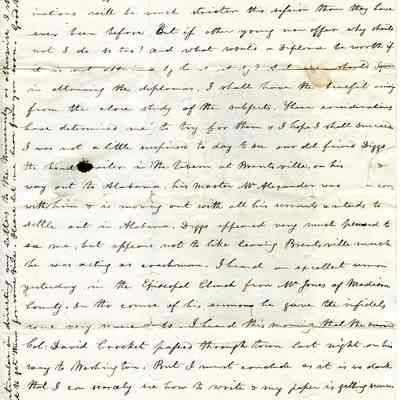 inations will be much stricter this session than they have
ever been before But if other young men offer why should
not I do so too? and what would a Diploma be worth if
it is not attained by
in attaining the diplomas, I shall have the benefit arising
from the close study of the subjects. These considerations
have determined me to try for them & I hope I shall succeed
I was not a little surprised to day to see our old friend Diggs
the head waiter in the Tavern at Brentsville, on his
way out to Alabama, his master Mr Alexander was
with him & is moving out with all his servants & intends to
settle out in Alabama. Diggs appeared very much pleased to
see me, but appears not to like leaving Brentsville much
he was acting as coachman. I heard an excellent sermon
yesterday in the Episcopal Church from Mr Jones of Madison
County. In the course of his sermon he gave the infidels
some very severe cuts. I heard this morning that the
Col: David Crocket passed through town last night on his
way to Washington. But I must conclude as it is so dark
that I can scarcely see how to write & my paper is getting
in directing my letters to the University or otherwise, I